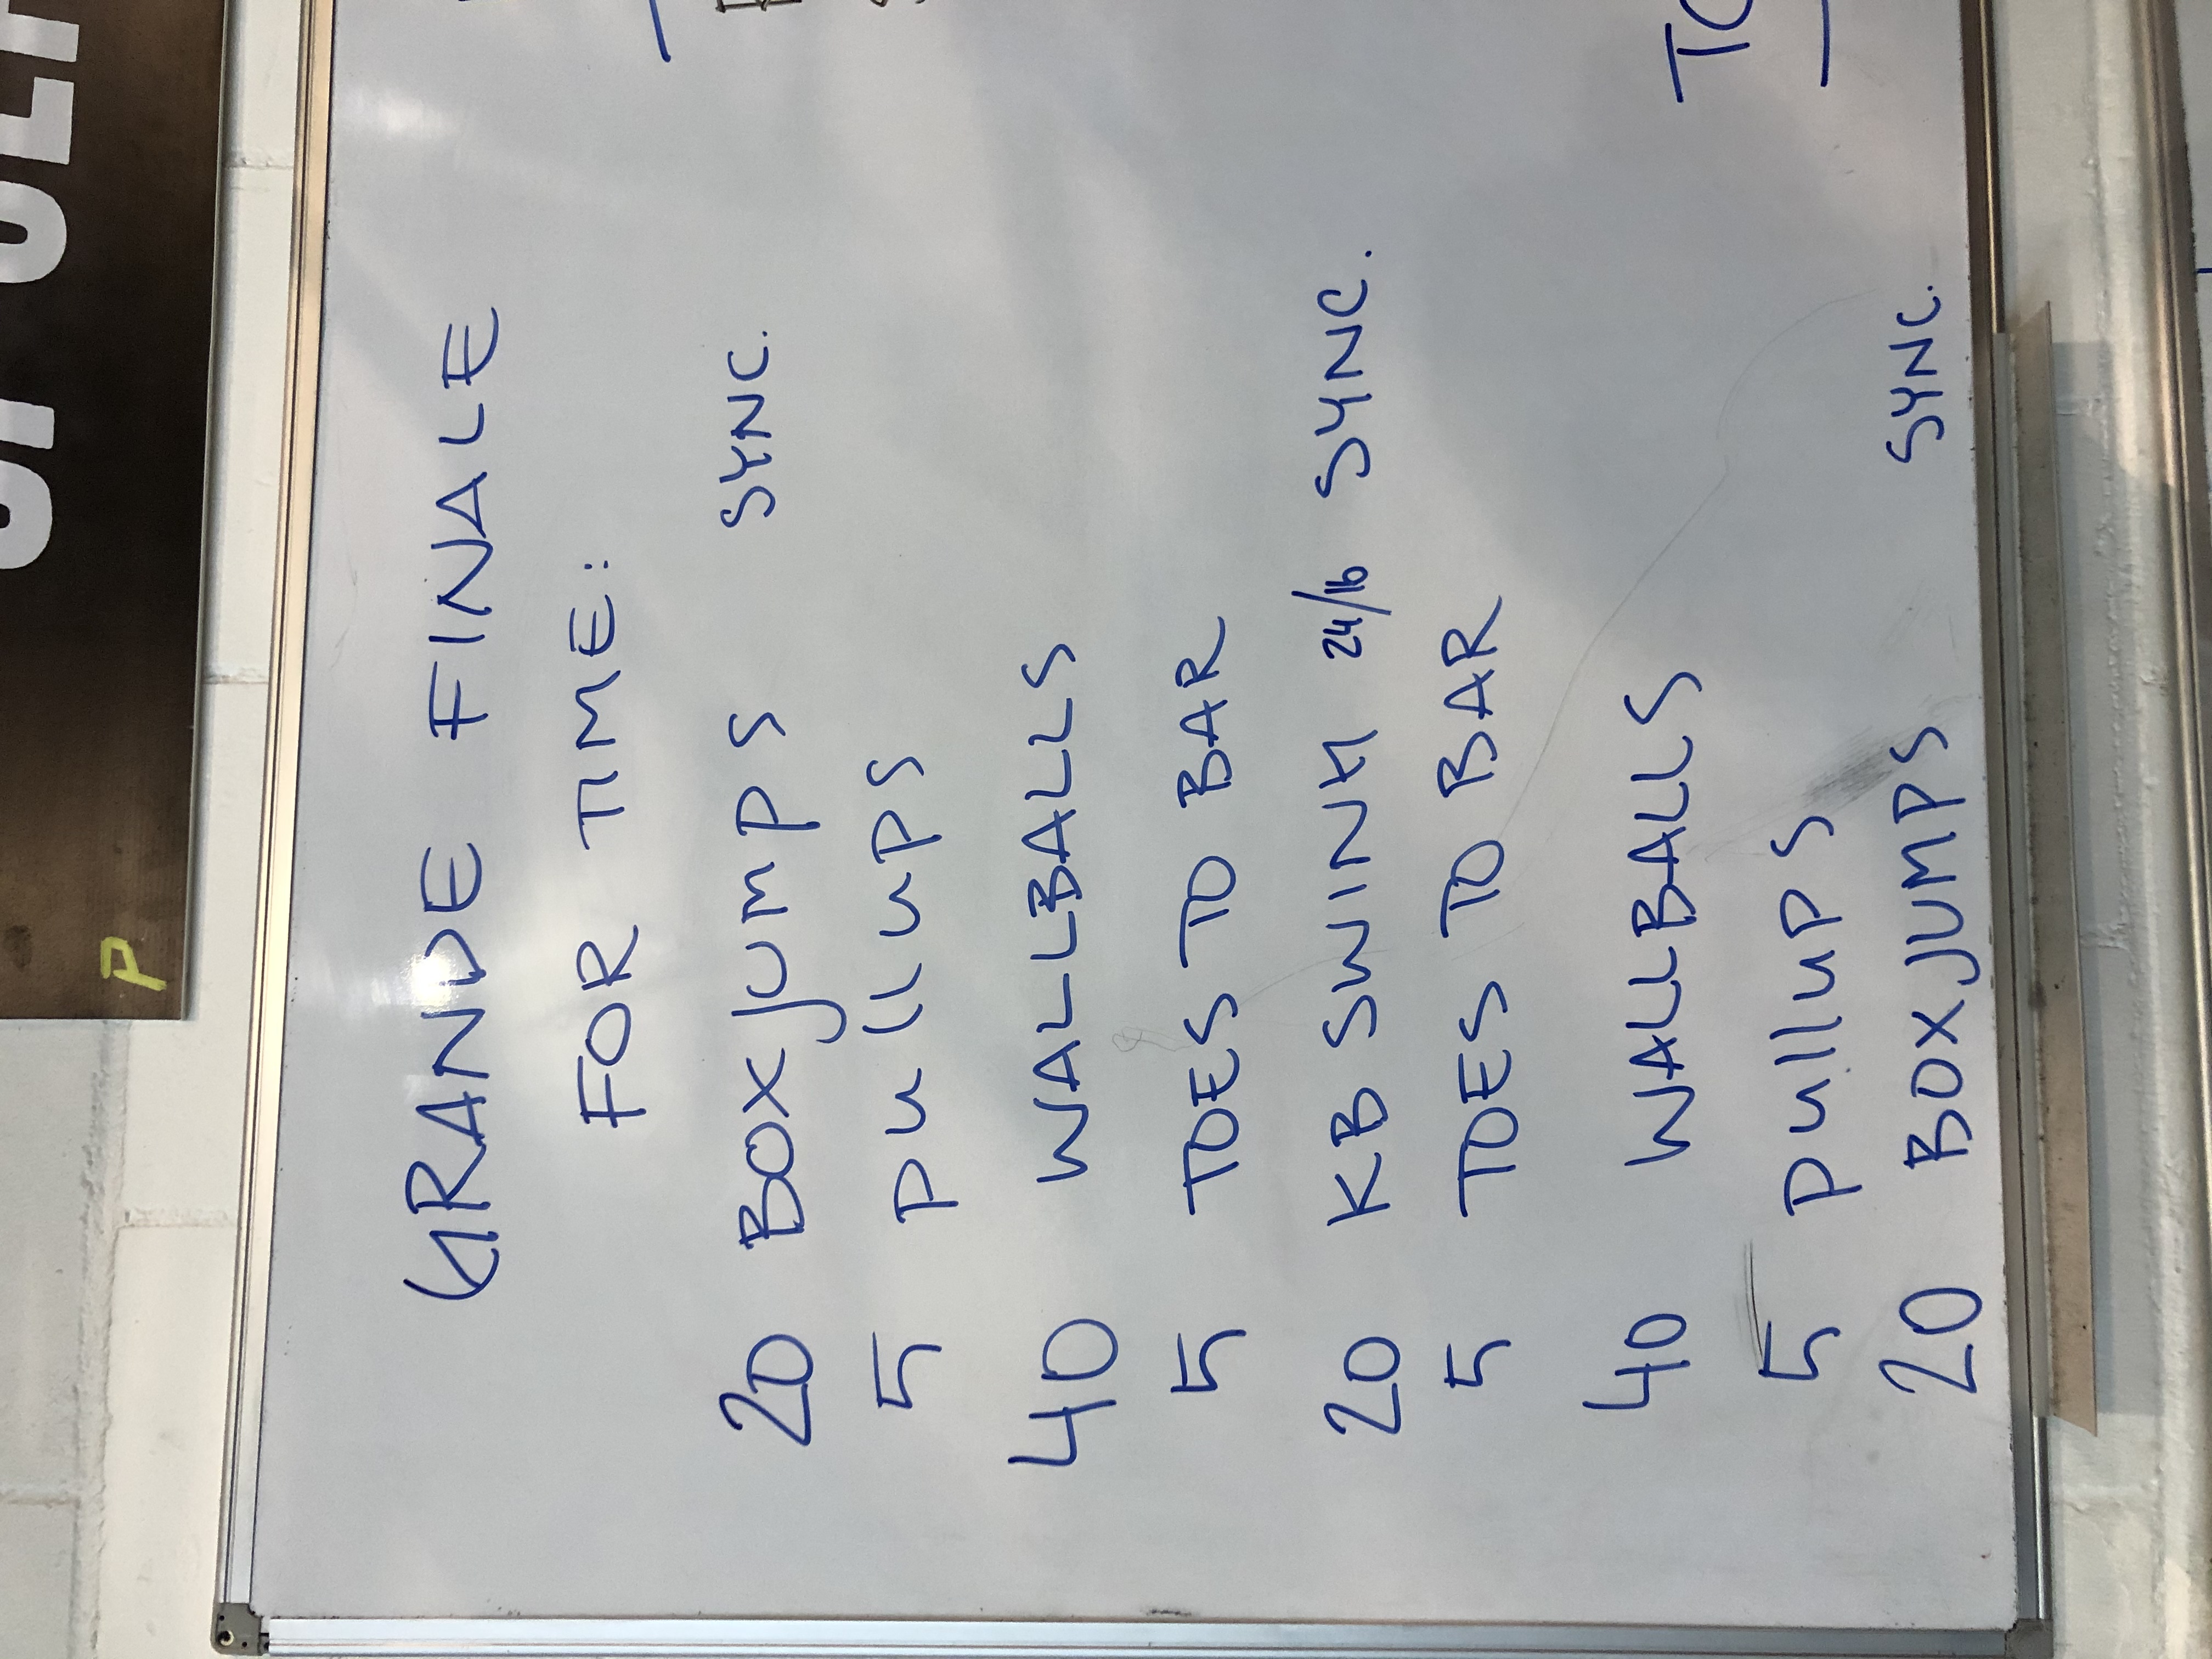 GRANDE FINALE
FOR TIME:
20 BOXJUMPS SYNC.
5 pullups
40 WALLBALLS
5 TOES TO BAR
20 KB SWING 24/16 SYNC.
5 TOES TO BAR
40 WALLBALLS
5 pullups
20 BOXJUMPS SYNC.
P